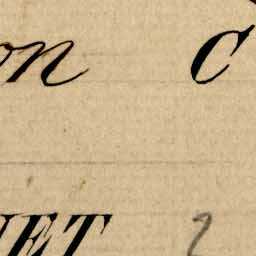 on C
NET 2